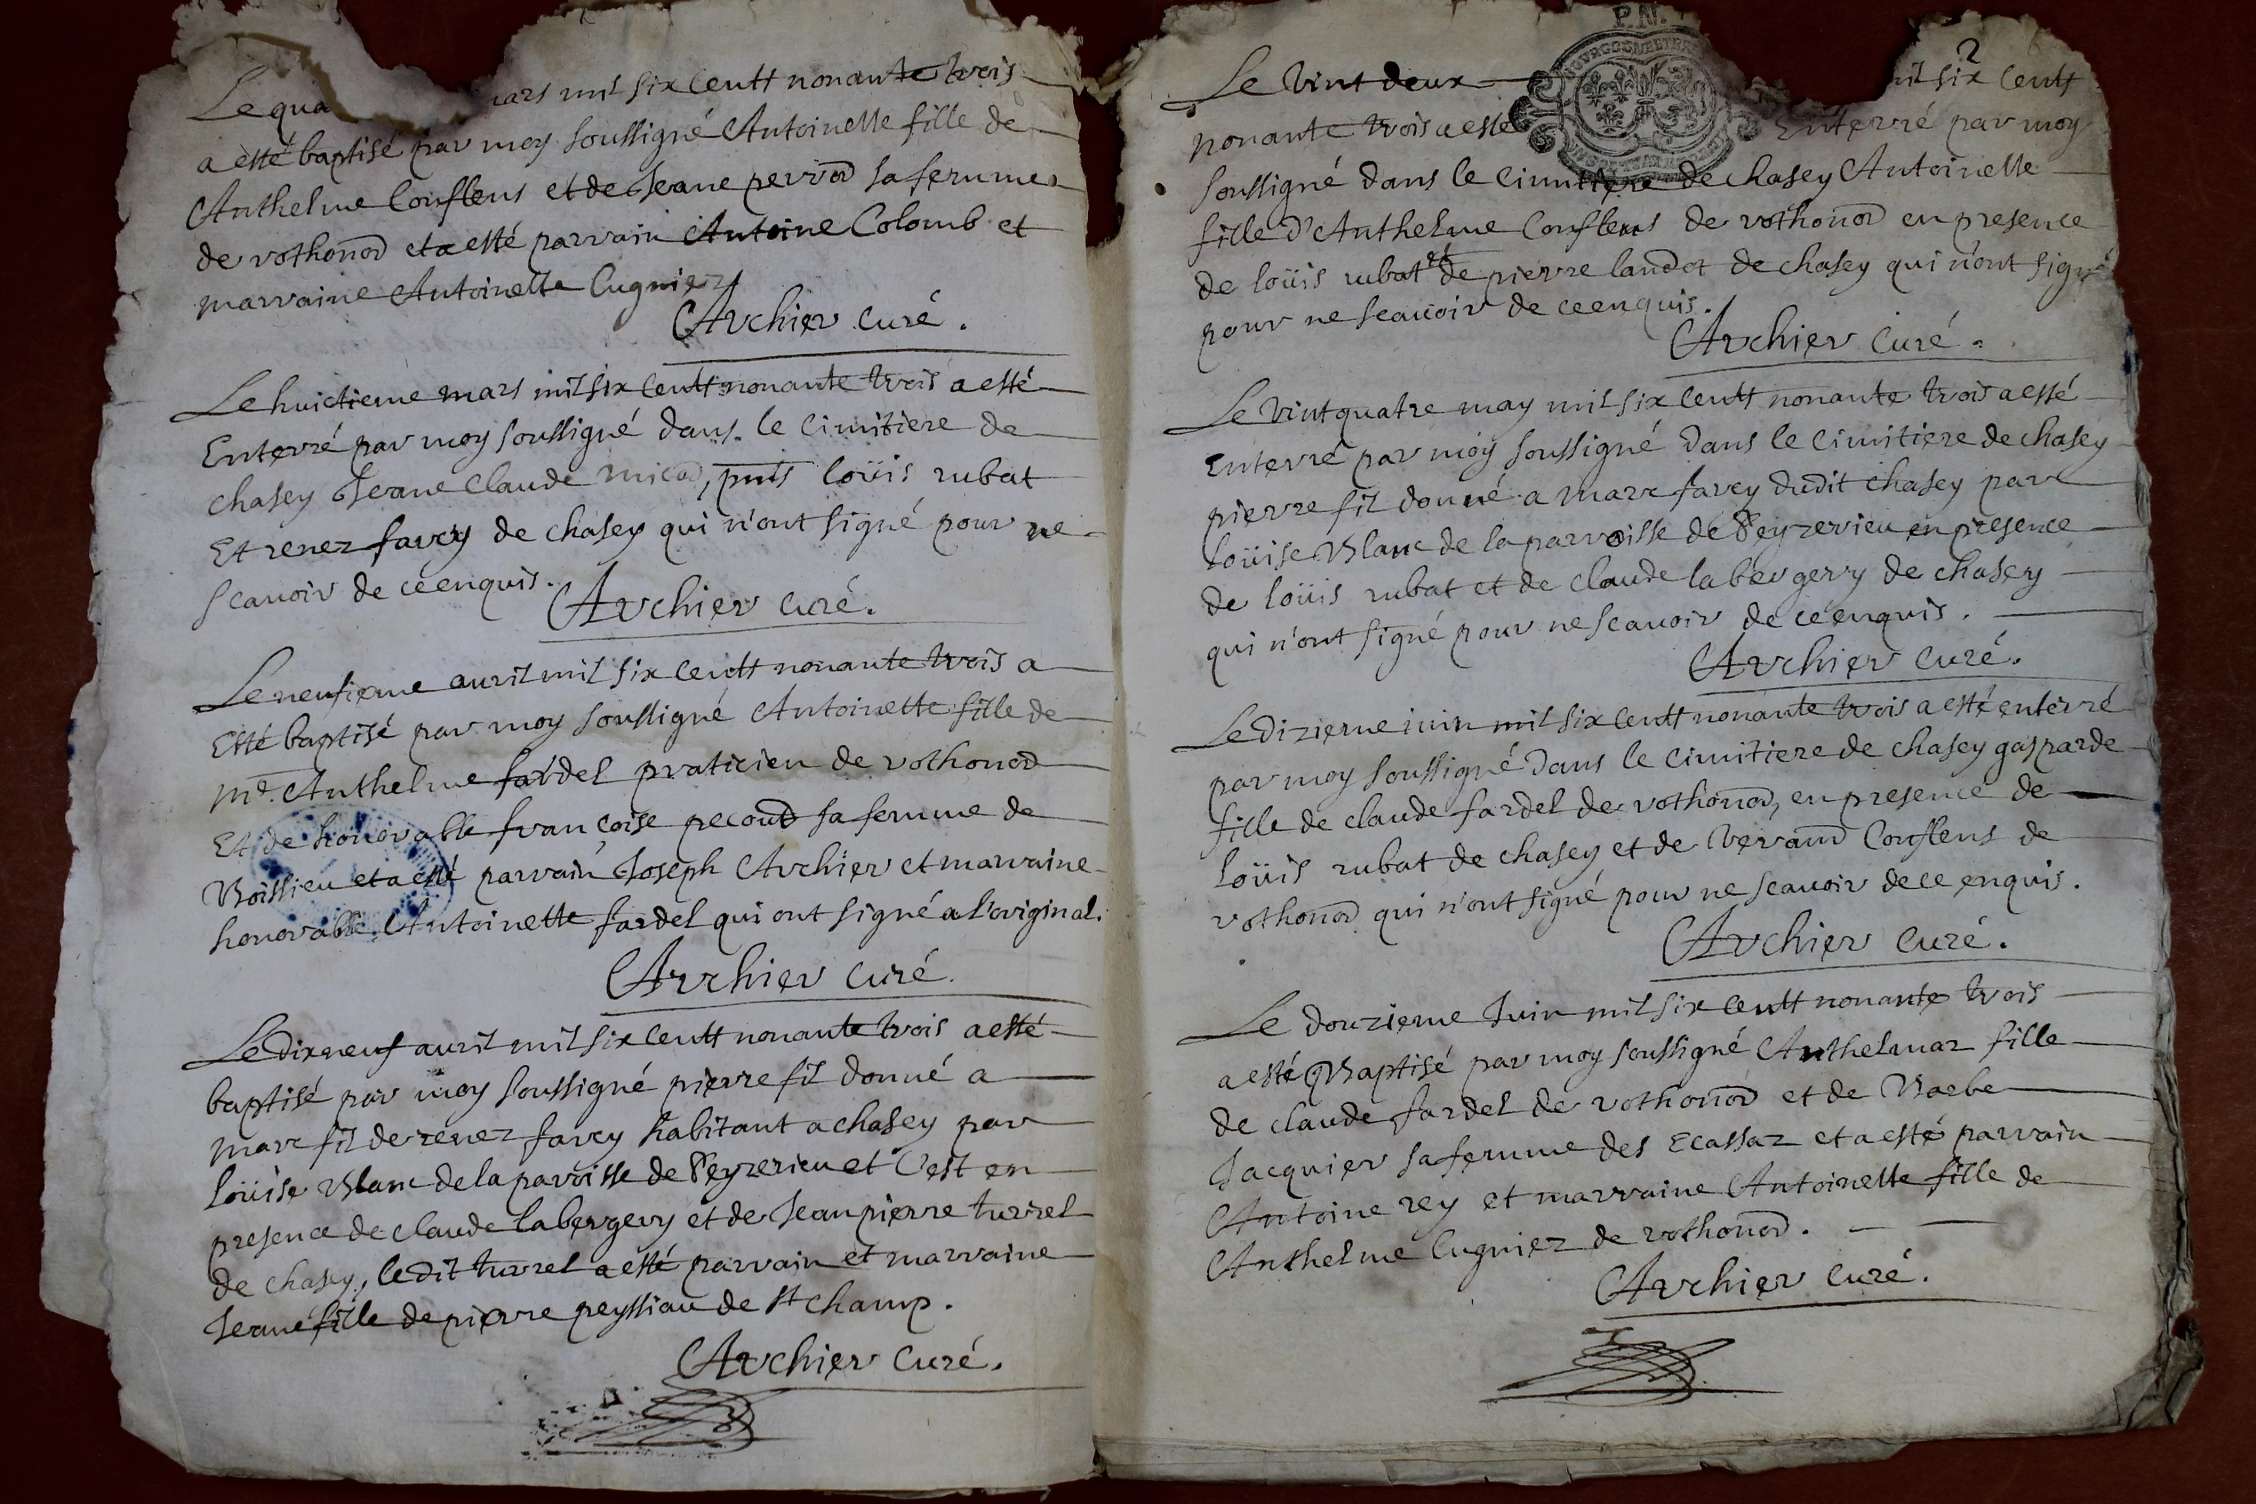 Le qua mars mil six centt nonante trois
a esté baptisé par moy soussigné Antoinette fille de
Anthelme Conflens et de Jeane perrod sa femme
de vothonod et a esté parrain Antoine Colomb et
marraine Antoinette Cugniez
Archier curé.
Le huictieme mars mil six centt nonante trois a esté
Enterré par moy soussigné dans le cimitiere de
chasey Jeane Claude micod, pnts loüis rubat
Et renez favey de chasey qui n'ont signé pour ne
scauoir de ce enquis.
Archier curé.
Le neufieme auril mil six centt nonante trois a
Esté baptisé par moy soussigné Antoinette fille de
Me. Anthelme fardel praticien de vothonod
Et de honorable francoise pecoud sa femme de
Boissieu et a esté parrain Joseph Archier et marraine
honorable Antoinette fardel qui ont signé a l'original.
Archier curé.
Le dixneuf auril mil six centt nonante trois a esté
baptisé par moy soussigné pierre fil donné a
marc fil de renez favey habitant a chasey par
loüise Blanc de la paroisse de Peyzerieu et C'est en
presence de claude labergery et de Jean pierre turrel
de chasey, ledit turrel a esté parrain et marraine
Jeane fille de pierre peyssiau de st champ.
Archier curé.
P.N.
2
Le vint deux mil six centt
nonante trois a esté Enterré par moy
soussigné dans le cimitiere de chasey Antoinette
fille d'Anthelme Conflens de vothonod en presence
de loüis rubat et de pierre landot de chasey qui n'ont signé
pour ne scauoir de ce enquis.
Archier curé.
Le vint quatre may mil six centt nonante trois a esté
Enterré par moy soussigné dans le cimitiere de chasey
pierre fil donné a marc favey dudit chasey par
loüise Blanc de la parroisse de Peyzerieu en presence
de loüis rubat et de claude labergery de chasey
qui n'ont signé pour ne scauoir de ce enquis.
Archier curé.
Le dizieme iuin mil six centt nonante trois a esté enterré
par moy soussigné dans le cimitiere de chasey gasparde
fille de claude fardel de vothonod, en presence de
loüis rubat de chasey et de Verand Conflens de
vothonod qui n'ont signé pour ne scauoir de ce enquis.
Archier curé.
Le douzieme Juin mil six centt nonante trois
a esté Baptisé par moy soussigné Anthelmaz fille
de claude fardel de vothonod et de Baebe
Jacquier sa femme des Ecassaz et a esté parrain
Antoine rey et marraine Antoinette fille de
Anthelme Cugniez de vothonod.
Archier curé.